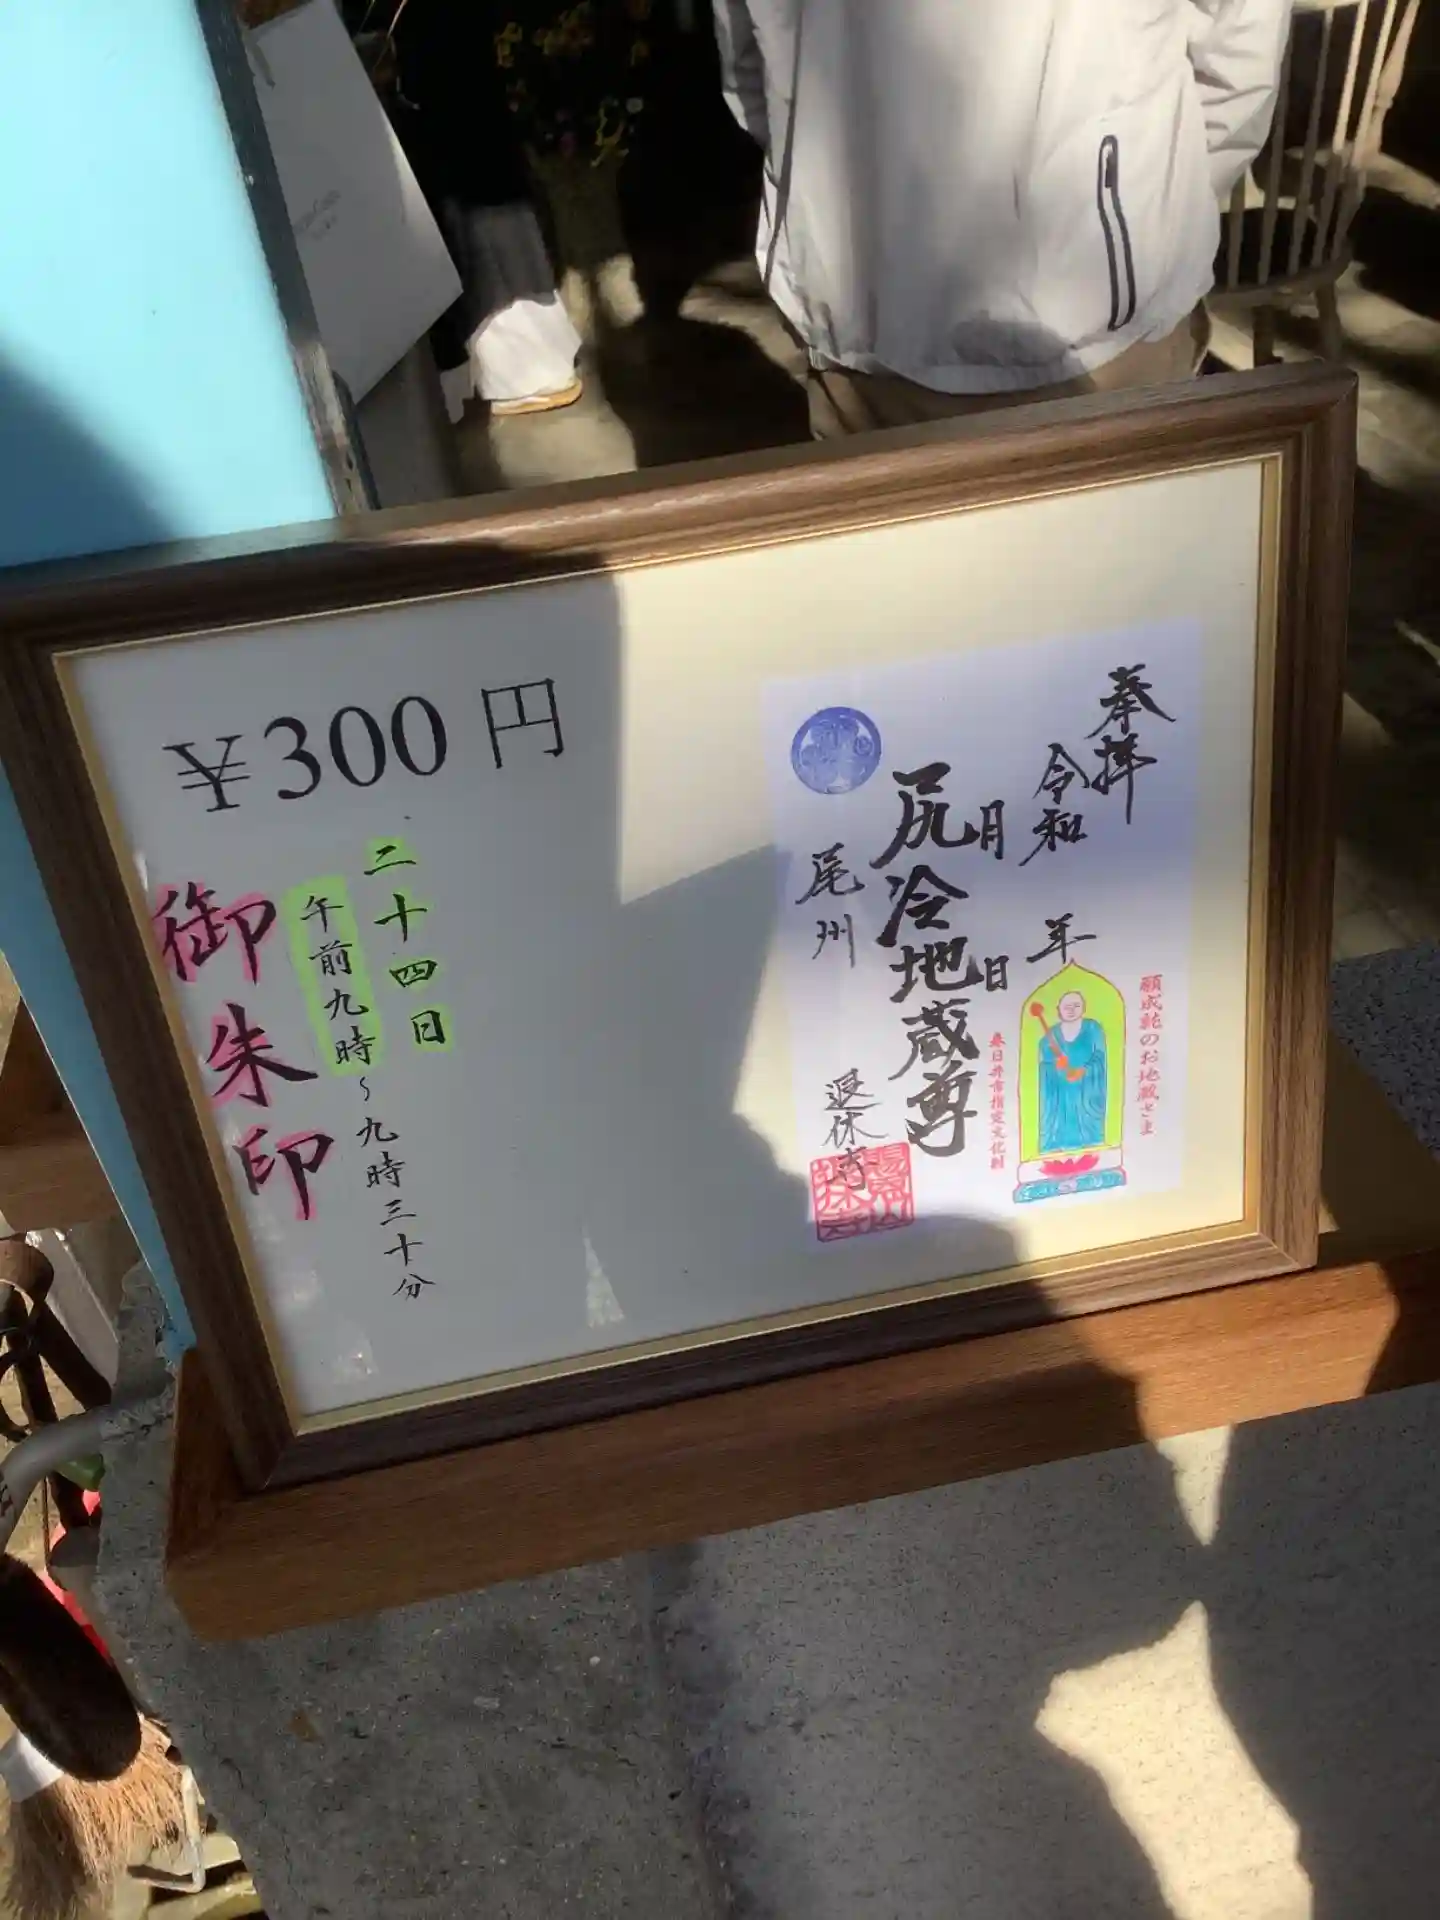 ¥300円
二十四日
午前九時~九時三十分
御朱印
奉拝
令和 年
月 日
尻冷地蔵尊
尾州 退休寺
願成就のお地蔵さま
春日井市指定文化財